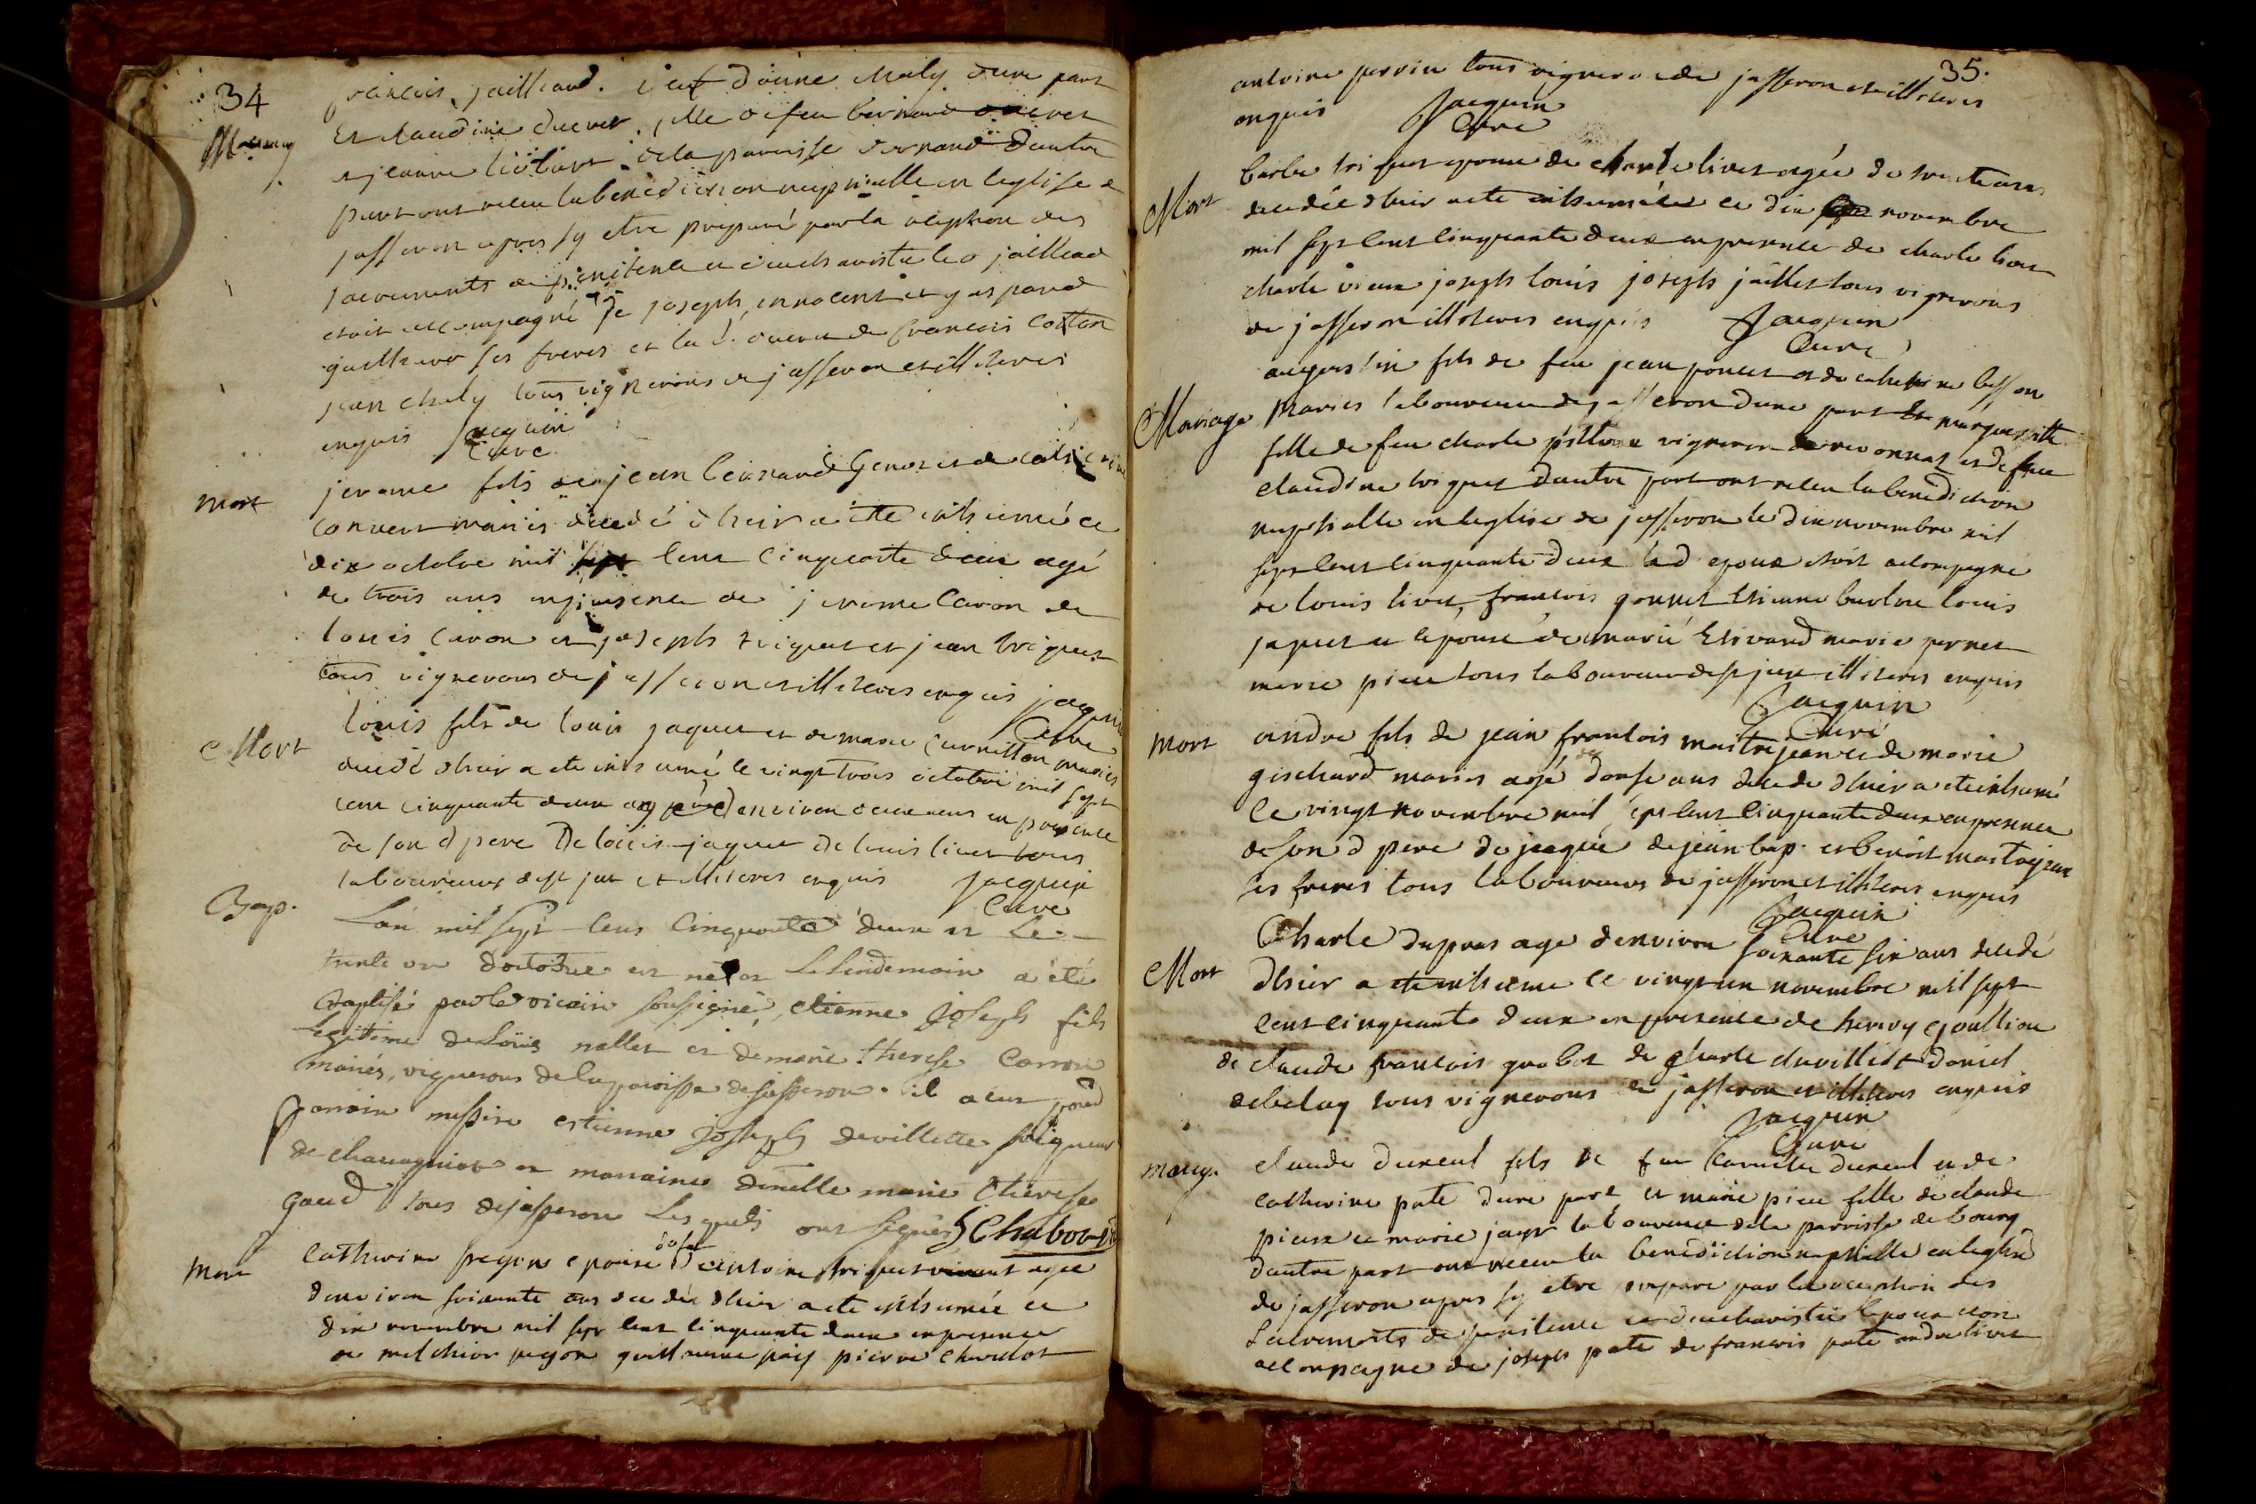 34
françois jailleaud. veuf d'anne chaly d'une part
Mariag
Et claudine ducret fille de feu bernard ducret
et jeanne de la paroisse d'autre
part ont receu la benediction nuptialle en l'eglise de
jasseron apres sy etre preparé par la reception des
sacrements de penitence et d'eucharistie le d jaillead
etoit accompagné de joseph, innocent et gaspard
jailleaud ses freres et la d. ducret de françois
jean chaly tous vignerons de jasseron et illiteres
enquis Jacquin
Curé
Mort
jerome fils de jean bernard et de
convert mariés decedé d'hier a ete inhumé ce
dix octobre mil sept cent cinquante deux agé
de trois ans en presence de jerome Caron de
louis Caron et joseph triquet et jean triquet
tous vignerons de jasseron et illiteres enquis jacquin
Curé
Mort
louis fils de louis jaquet et de marie mariés
decedé d'hier a ete inhumé le vingt trois octobre mil sept
cent cinquante deux agé d'environ deux ans en presence
de son d pere De louis jaquet De louis livet tous
laboureurs dest just et illiteres enquis Jacquin
Curé
Bap.
L'an mil sept cens cinquante deux et Le
trente un d'octobre est né et Le lendemain a été
Baptisé par le vicaire soussigné, etienne Joseph fils
Legitime de Loüis nallet et de marie therese Carron
mariés, vignerons de la paroisse de jasseron. il a eut pour
parrain messire estienne Joseph devillette seigneur
de chavagniat et marraine dmelle marie therese
gaud tous de jasseron Lesquels ont signés Chabout
Mort
Catherine epouse de feu d'antoine triquet vivant agée
d'environ soixante ans decedée d'hier a ete inhumée ce
dix novembre mil sept cent cinquante deux en presence
de melchior guillaume pierre chardot
35.
antoine perrin tous vignerons de jasseron et illiteres
enquis Jacquin
Curé
Mort
barbe triquet epouse de charle livet agée de trente ans
decedée d'hier a ete inhumée ce dix novembre
mil sept cent cinquante deux en presence de charle livet
charle vieux joseph louis joseph jaillet tous vignerons
de jasseron illiteres enquis Jacquin
Curé
Mariage
augustin fils de feu jean poncet et de catherine besson
mariés laboureurs de jasseron d'une part Et marguerite
fille de feu charle vigneron de revonnas et de feue
claudine triquet d'autre part ont receu la benediction
nuptialle en l'eglise de jasseron le dix novembre mil
sept cent cinquante deux led epoux etoit accompagné
de louis livet, françois gonnet Etienne louis
jaquet et l'epouse de marié marie pernet
marie pieu tous laboureurs dest just illiteres enquis
Jacquin
Curé
Mort
andre fils de jean françois maitrejean et de marie
gischard mariés agé d'onse ans decedé d'hier a ete inhumé
ce vingt novembre mil sept cent cinquante deux en presence
de son d pere de jacque de jean bap. et benoit maitrejean
ses freres tous laboureurs de jasseron et illiteres enquis
Jacquin
Curé
Mort
Charle dupras agé d'environ soixante six ans decedé
d'hier a ete inhumé ce vingt un novembre mil sept
cent cinquante deux en presence de
de claude françois grabot de charle duvillet daniel
debelay tous vignerons de jasseron et illiteres enquis
Jacquin
Curé
mariag.
claude durent fils de feu Camille durent et de
catherine pate d'une part et marie pieu fille de claude
pieux et marie jayr laboureurs de la parroisse de bourg
d'autre part ont receu la benediction nuptialle en l'eglise
de jasseron apres sy etre preparé par la reception des
sacrements de penitence et d'eucharistie l'epoux etoit
accompagné de joseph pate de francois pate andre livet